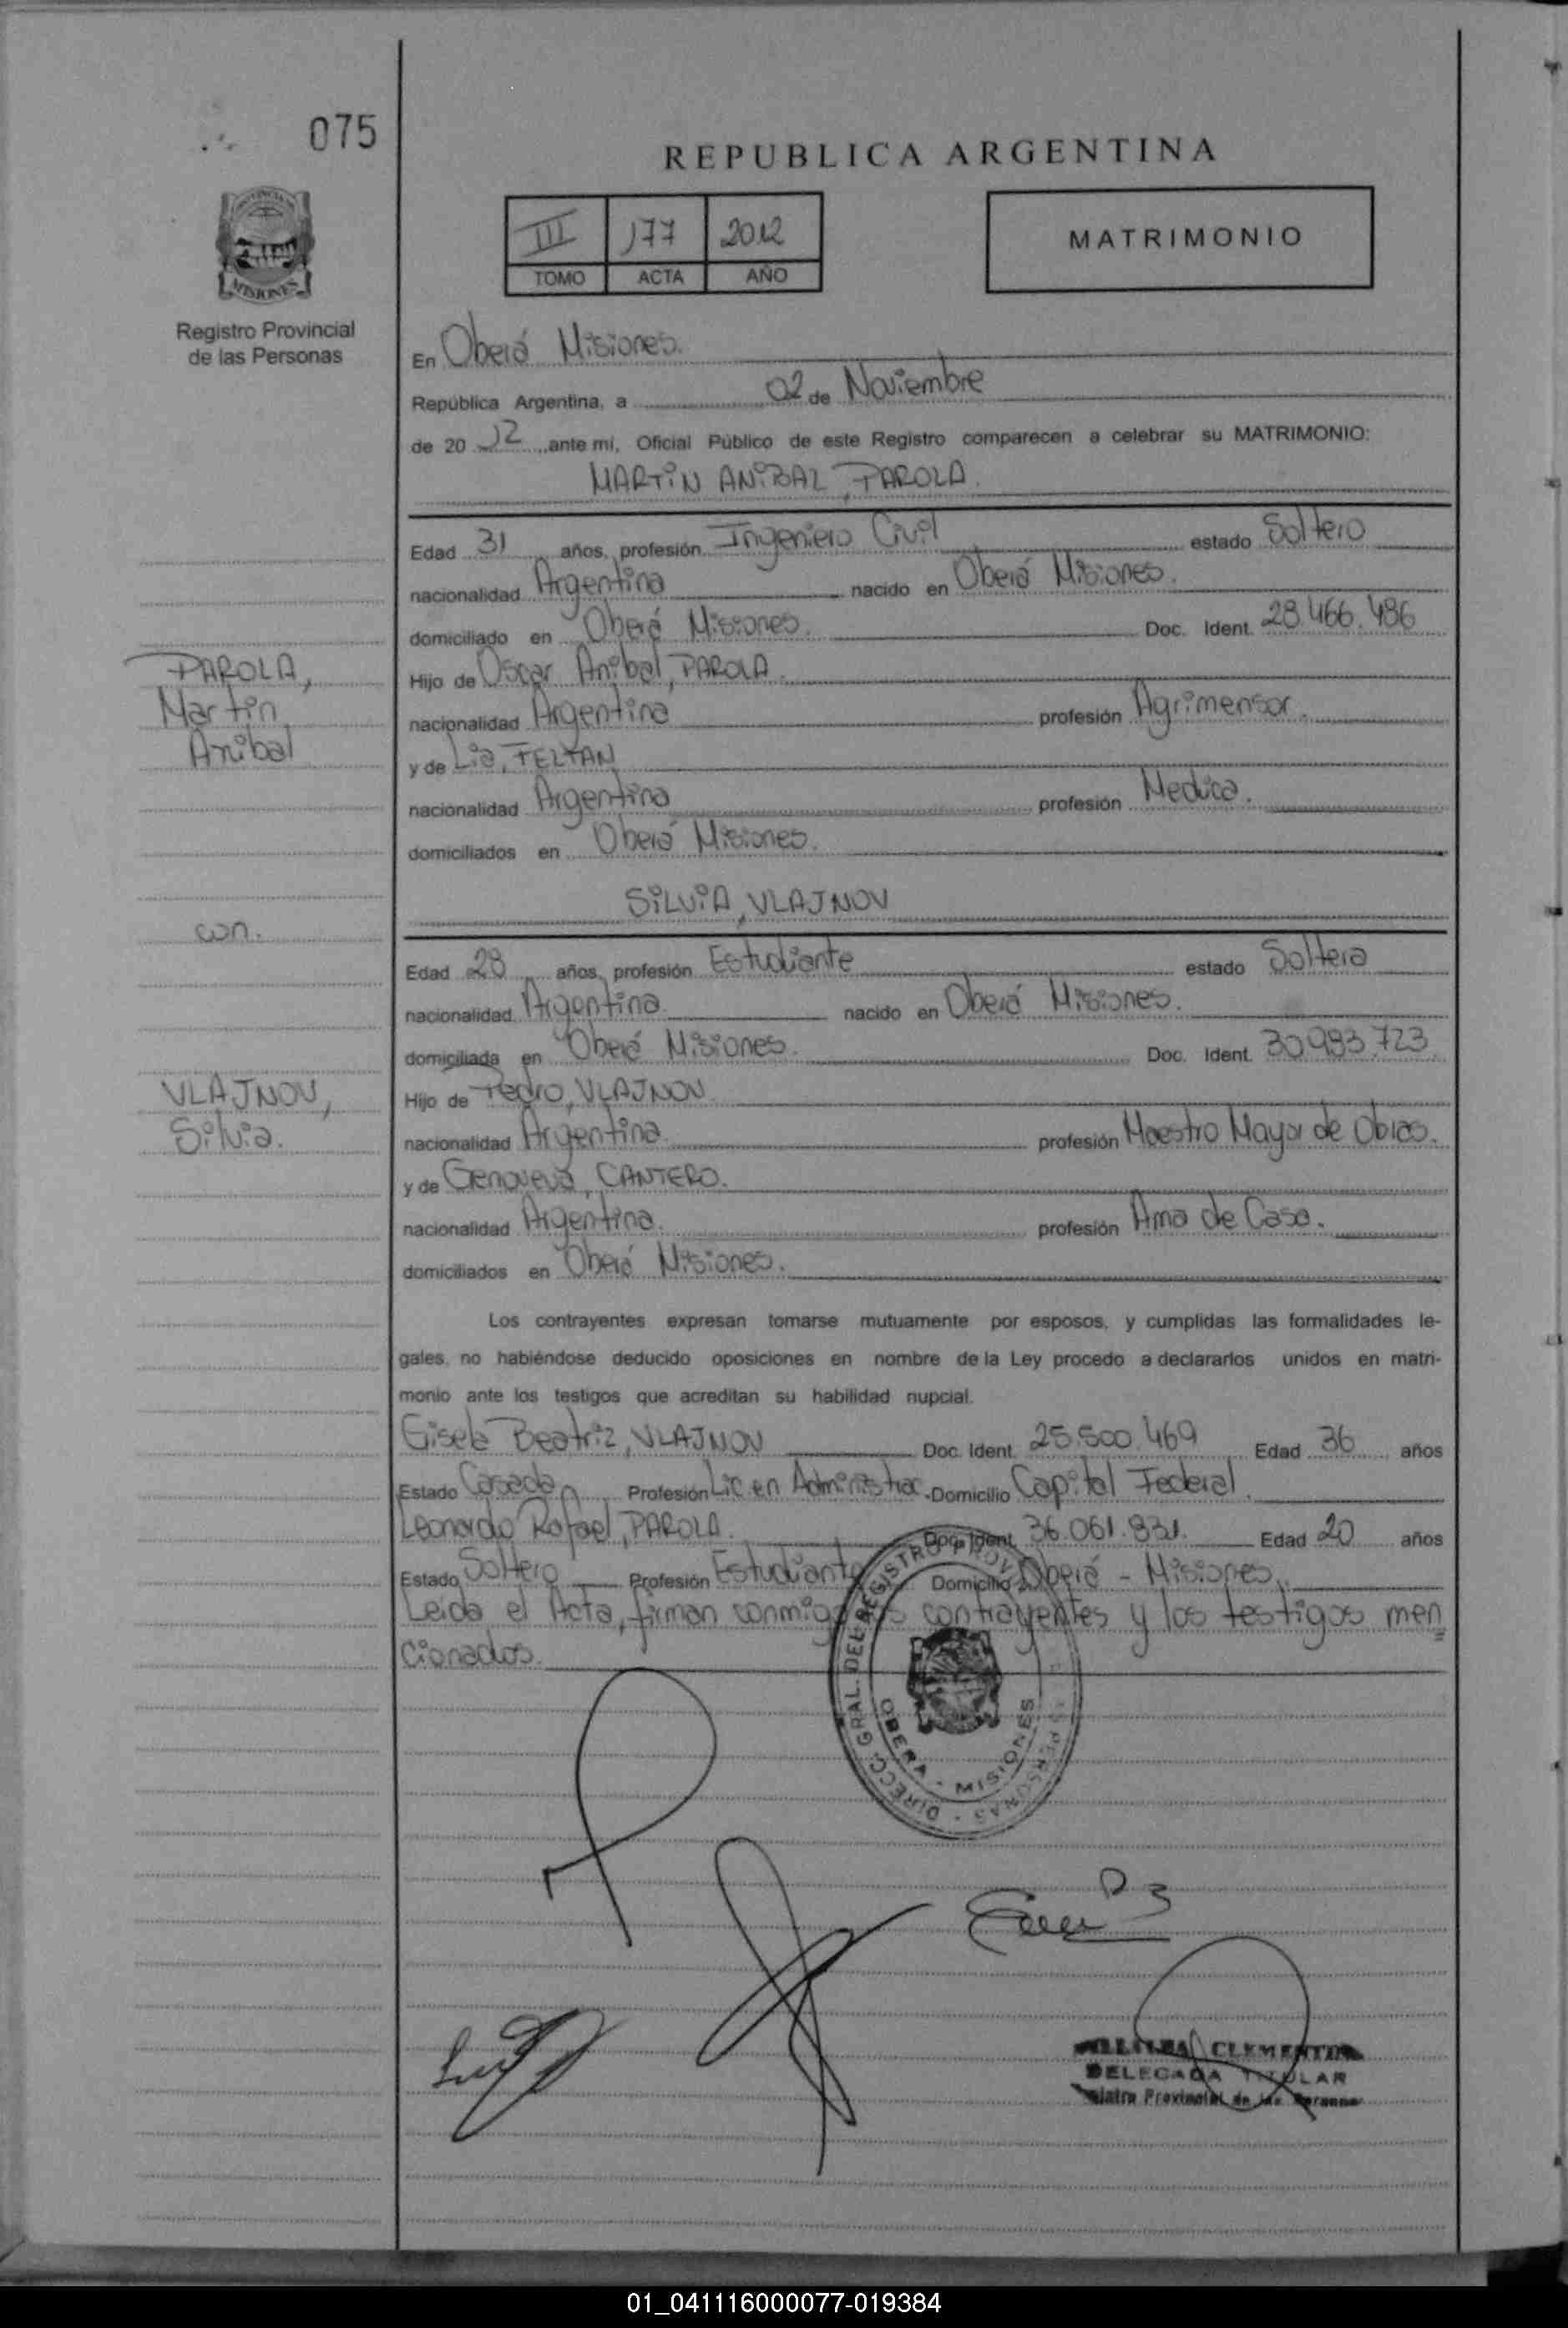 075
REPUBLICA ARGENTINA
PROVINCIA DE
MISIONES
Registro Provincial
de las Personas
III 177 2012
TOMO ACTA AÑO
MATRIMONIO
En Oberá Misiones.
República Argentina, a 02 de Noviembre
de 20 12 ante mi, Oficial Público de este Registro comparecen a celebrar su MATRIMONIO:
MARTIN ANIBAL, PAROLA.
Edad 31 años, profesión Ingeniero Civil estado Soltero
nacionalidad Argentina nacido en Oberá Misiones.
domiciliado en Oberá Misiones. Doc. Ident. 28.466.486
Hijo de Oscar Anibal, PAROLA.
nacionalidad Argentina profesión Agrimensor.
y de Lia, FELTAN
nacionalidad Argentina profesión Medica.
domiciliados en Oberá Misiones.
PAROLA,
Martin
Anibal
con.
VLAJNOV,
Silvia.
SILVIA, VLAJNOV
Edad 28 años, profesión Estudiante estado Soltera
nacionalidad Argentina nacido en Oberá Misiones.
domiciliada en Oberá Misiones. Doc. Ident. 30.983.723
Hijo de Pedro, VLAJNOV.
nacionalidad Argentina profesión Maestro Mayor de Obras.
y de Genoveva, CANTERO.
nacionalidad Argentina. profesión Ama de Casa.
domiciliados en Oberá Misiones.
Los contrayentes expresan tomarse mutuamente por esposos, y cumplidas las formalidades le-
gales, no habiéndose deducido oposiciones en nombre de la Ley procedo a declararlos unidos en matri-
monio ante los testigos que acreditan su habilidad nupcial.
Gisela Beatriz, VLAJNOV Doc. Ident. 25.500.469 Edad 36 años
Estado Casada Profesión Lic en Administrac. Domicilio Capital Federal.
Leonardo Rafael, PAROLA. Doc. Ident. 36.061.831. Edad 20 años
Estado Soltero Profesión Estudiante Domicilio Oberá - Misiones.
Leída el Acta, firman conmigo los contrayentes y los testigos men
cionados.
DIRECC. GRAL. DEL REGISTRO PROV. PERSONAS
OBERA - MISIONES
CLEMENTINA
DELEGADA TITULAR
Provincial de las Personas
01_041116000077-019384